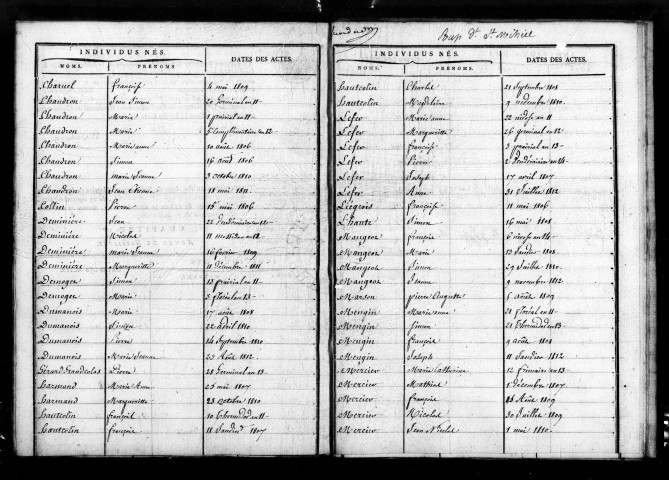 INDIVIDUS NÉS.
DATES DES ACTES.
NOMS.
PRÉNOMS
Charuel François 4 mai 1809
Chaudron Jean Simon 20 Germinal an 11
Chaudron Marie 1 prairial an 11
Chaudron Marie 5 Complimentaire an 12
Chaudron Marie anne 10 août 1806
Chaudron Simon 16 août 1806
Chaudron Marie Jeanne 3 octobre 1810
Chaudron Jean Etienne 18 mai 1811
Collin Pierre 15 mai 1806
Deminière Jean 22 Vendémiaire an 12
Deminière Nicolas 11 messidor an 12
Deminière Marie Jeanne 16 février 1809
Deminière Marguerite 11 Décembre 1811
Demoget Simon 13 prairial an 11
Demoget Marie 3 floréal an 13
Dumanois Marie 17 août 1808
Dumanois Simon 22 avril 1810
Dumanois Pierre 14 Septembre 1810
Dumanois Marie Jeanne 23 Août 1812
Gérard Grandcolas Pierre 28 Germinal an 13
harmand Marie Anne 25 mai 1807
harmand Marguerite 23 octobre 1810
hautcolin françois 10 thermidor an 11
hautcolin françoise 11 Janvier 1807
St. Mihiel
INDIVIDUS NÉS.
DATES DES ACTES.
NOMS.
PRÉNOMS
hautcolin Charles 21 Septembre 1808
hautcolin Magdeleine 9 decembre 1810
Lefer Marie anne 22 nivose an 11
Lefer Marguerite 26 germinal an 12
Lefer François 3 prairial an 13
Lefer Pierre 2 Vendémiaire an 14
Lefer Joseph 17 avril 1807
Lefer Anne 31 Juillet 1812
Liégeois françois 11 mai 1806
Lhaute Simon 16 mai 1808
Mangeot françoise 6 nivose an 14
Mangeot Marie 13 Janvier 1808
Mangeot Simon 29 Juillet 1810
Mangeot Jeanne 9 novembre 1812
Marson pierre Auguste 5 août 1809
Mengin Marie anne 21 floréal an 11
Mengin Simon 21 thermidor an 13
Mengin françois 9 août 1808
Mengin Joseph 11 Janvier 1812
Mercier Marie Catherine 12 frimaire an 13
Mercier Mathieu 1 décembre 1807
Mercier françoise 18 Août 1809
Mercier Nicolas 30 Juillet 1809
Mercier Jean Nicolas 1 mai 1810